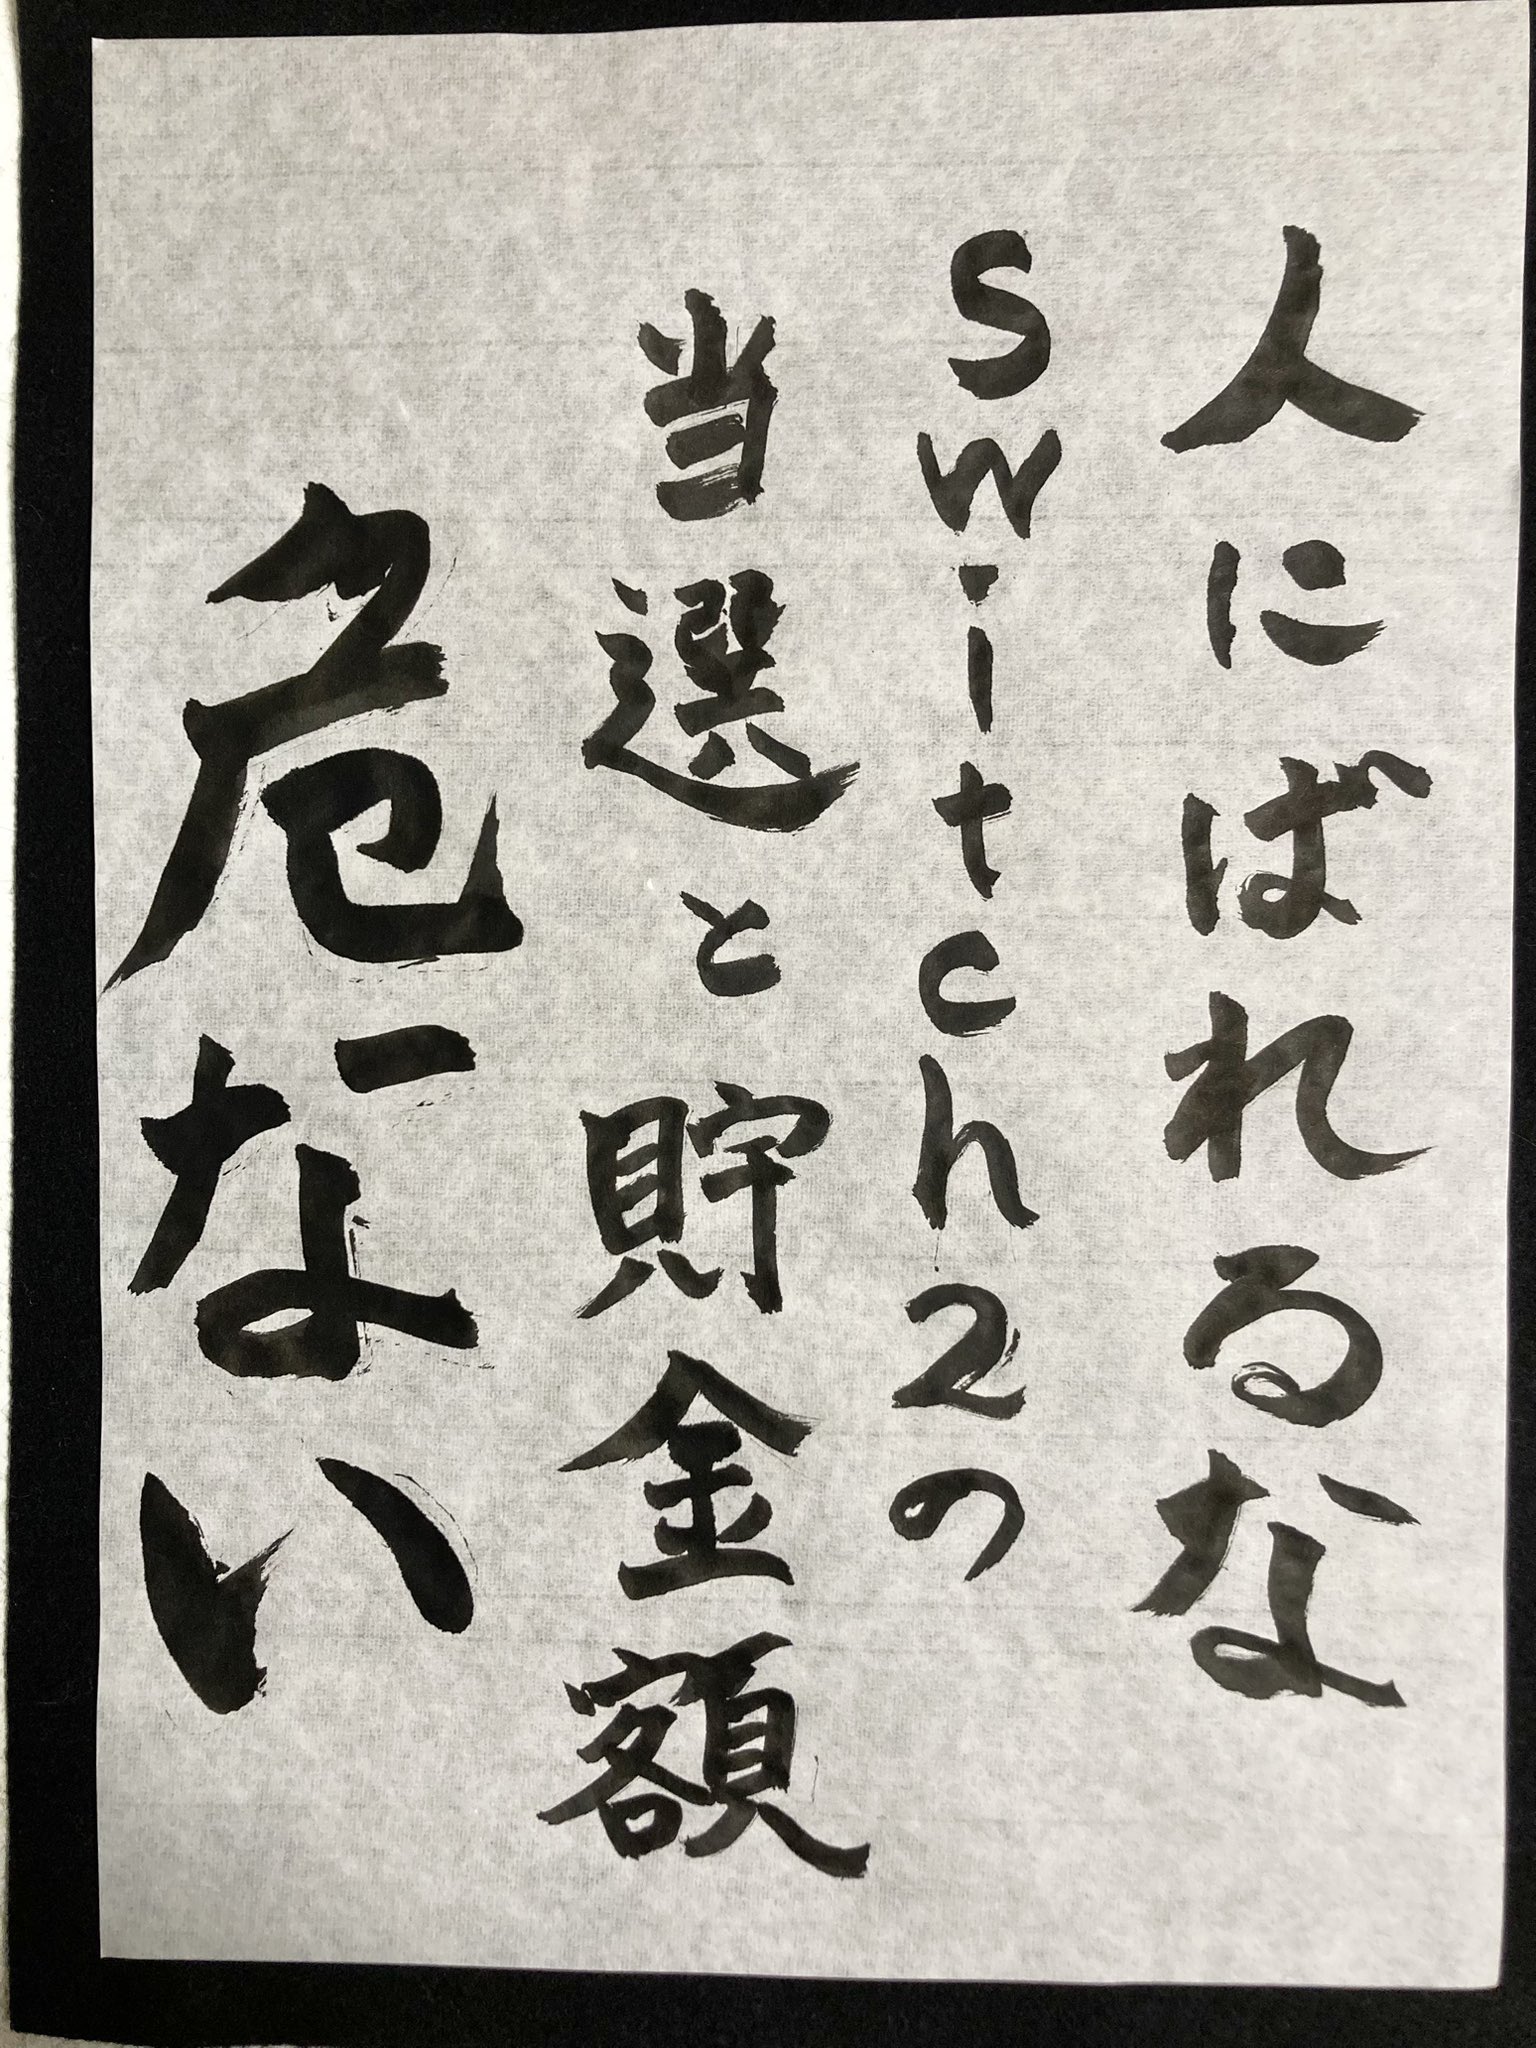 人にばれるな
Switch2の
当選と貯金額
危ない